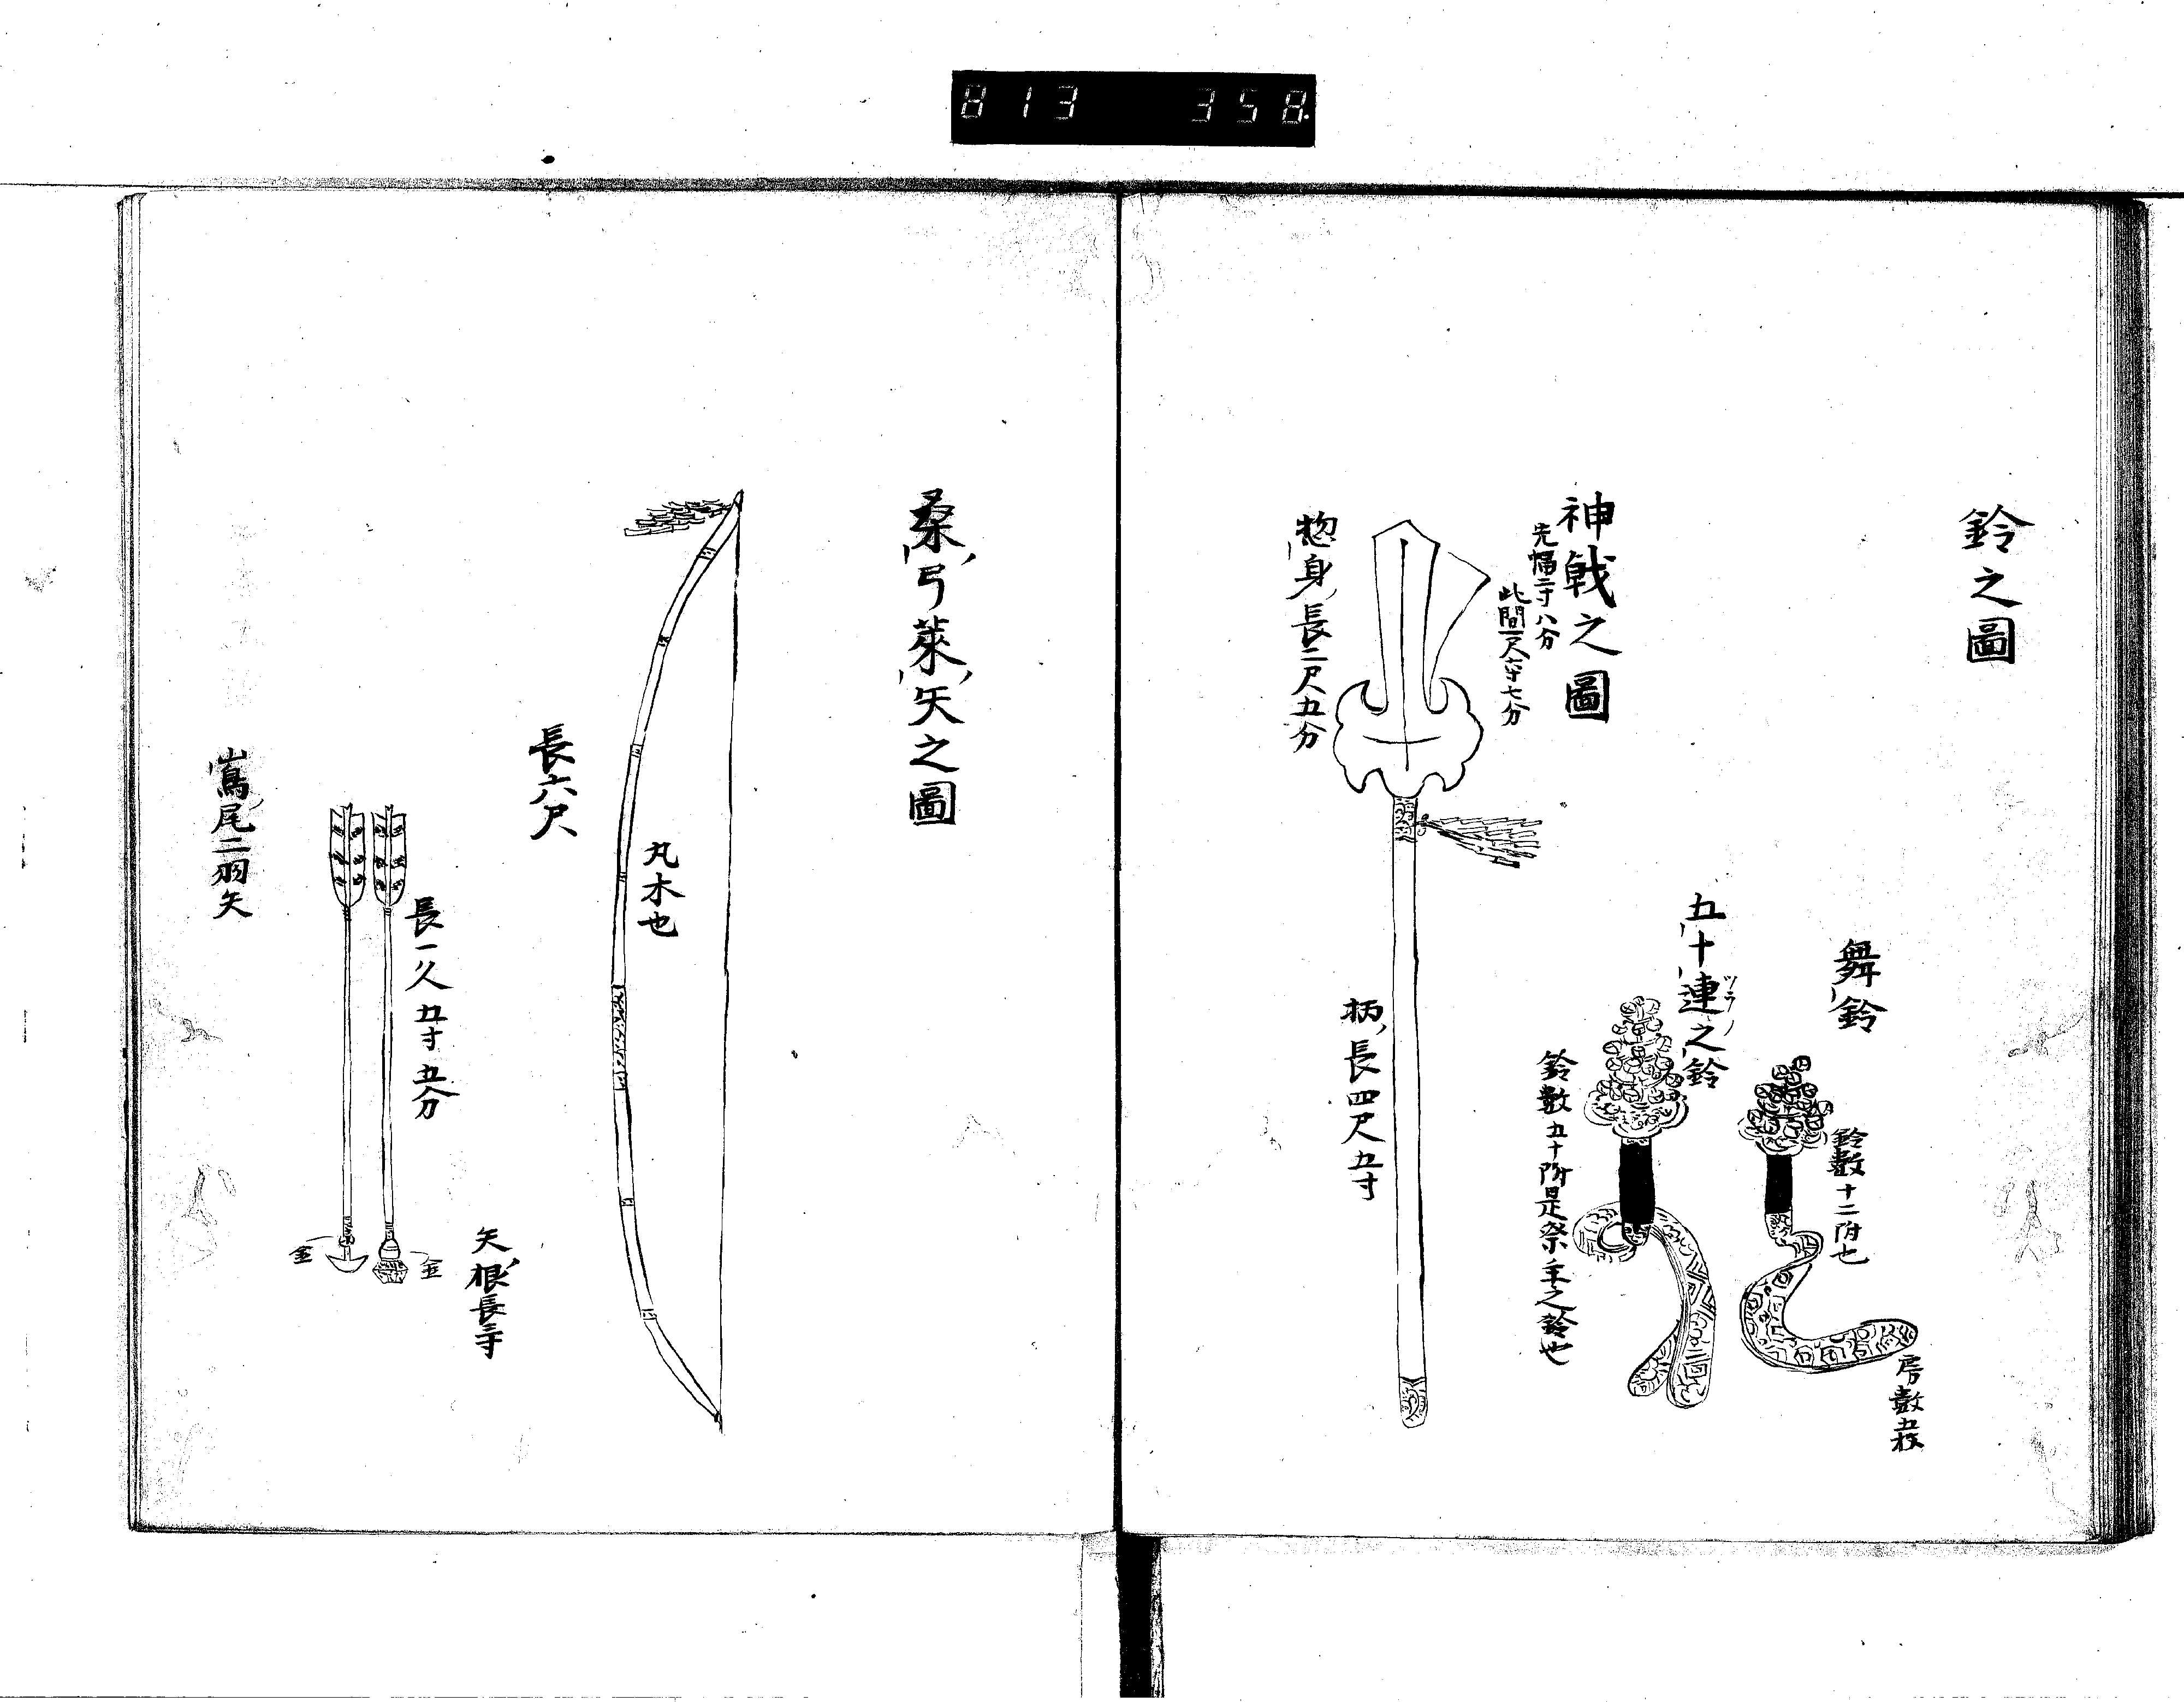 813 358.
鈴之圖
舞鈴
鈴數十二附也
房數五枚
五十連之鈴
ツラノ
鈴數五十附是祭主之鈴也
神戟之圖
先幅二寸八分
惣身長二尺五分
柄長四尺五寸
桑弓蓬矢之圖
丸木也
長六尺
矢根長三寸
長一久五寸五分
金
金
嶌尾二羽矢